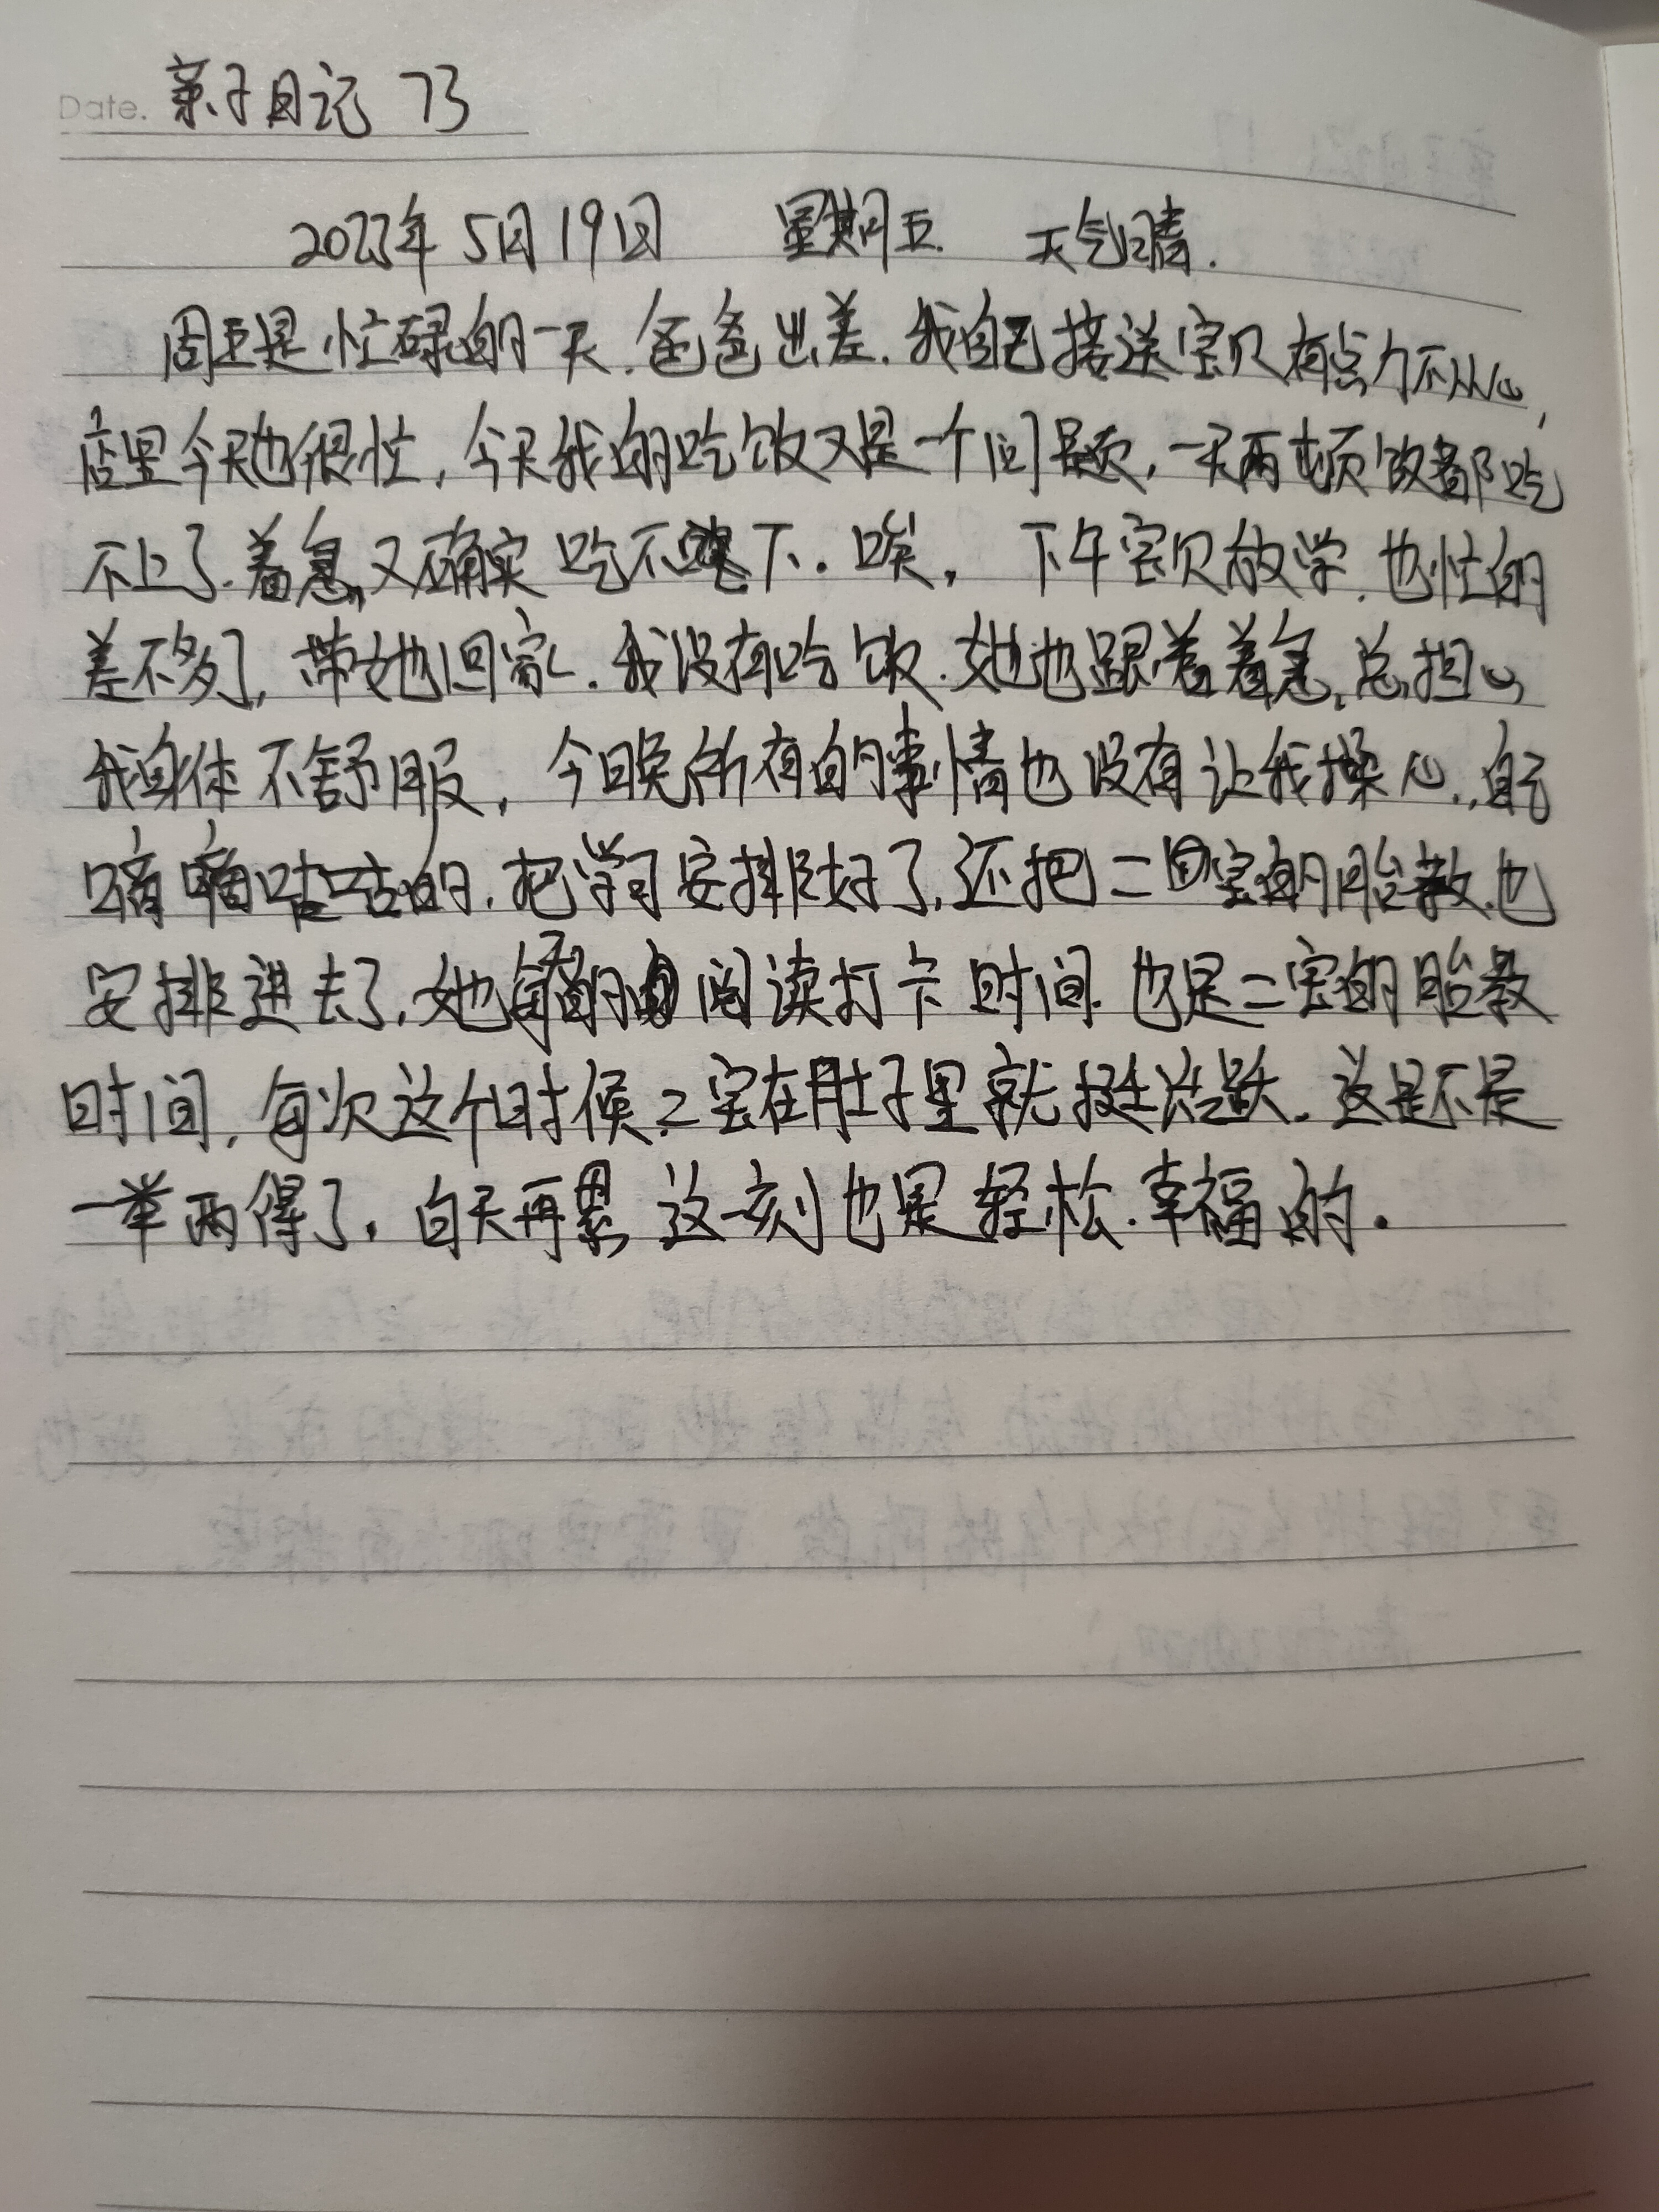 Date. 亲子日记 73
2023年5月19日 星期五. 天气晴.
周五是忙碌的一天.爸爸出差.我自己接送宝贝有点力不从心,
店里今天也很忙,今天我的吃饭又是一个问题,一天两顿饭都吃
不上了.着急,又确实吃不下.唉,下午宝贝放学.也忙的
差不多了,带她回家.我没有吃饭.她也跟着着急,总担心
我身体不舒服,今晚所有的事情也没有让我操心.,自己
嘀嘀咕咕的.把学习安排好了,还把二宝的胎教.也
安排进去了.她每天的阅读打卡时间.也是二宝的胎教
时间,每次这个时候.二宝在肚子里就挺活跃.这是不是
一举两得了.白天再累,这一刻也是轻松.幸福的.